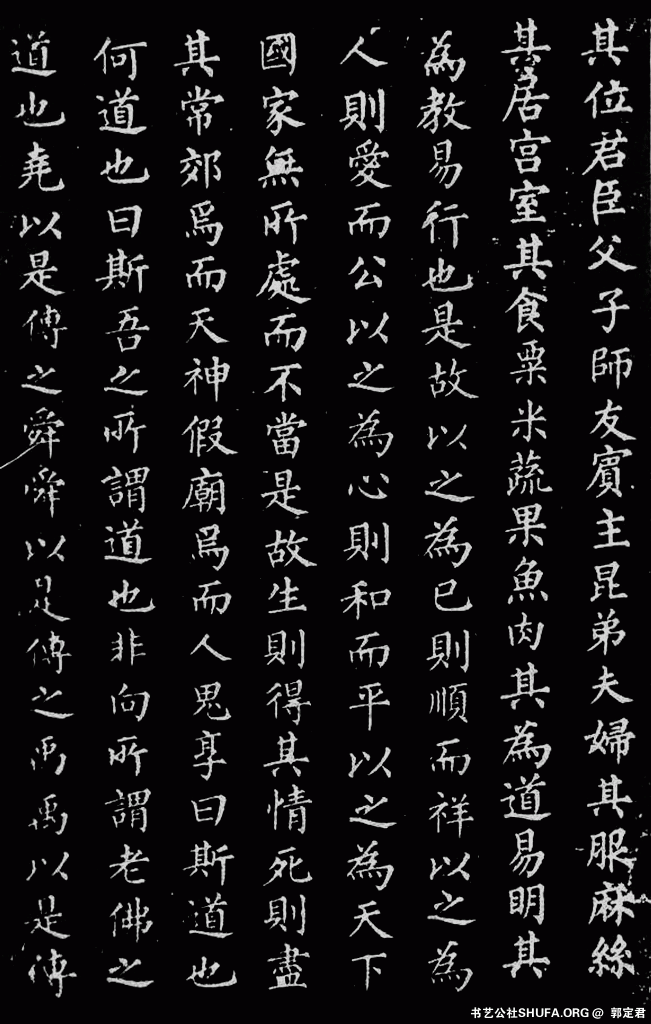 其位君臣父子師友賓主昆弟夫婦其服麻絲
其居宫室其食粟米蔬果魚肉其為道易明其
為教易行也是故以之為已則順而祥以之為
人則愛而公以之為心則和而平以之為天下
國家無所處而不當是故生則得其情死則盡
其常郊焉而天神假廟焉而人鬼享曰斯道也
何道也曰斯吾之所謂道也非向所謂老佛之
道也堯以是傳之舜舜以是傳之禹禹以是傳
书艺公社SHUFA.ORG @ 郭定君